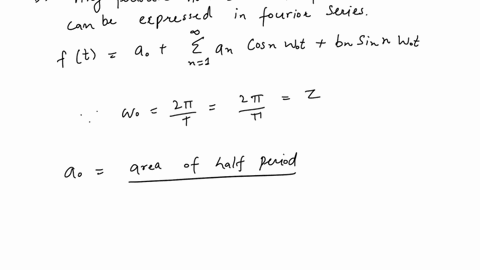 can be expressed in fourier series.
f(t) = a₀ + ∞ Σ n=1 aₙ Cos n w₀t + bₙ Sin n w₀t
∵ w₀ = 2π/T = 2π/π = 2
a₀ = area of half period